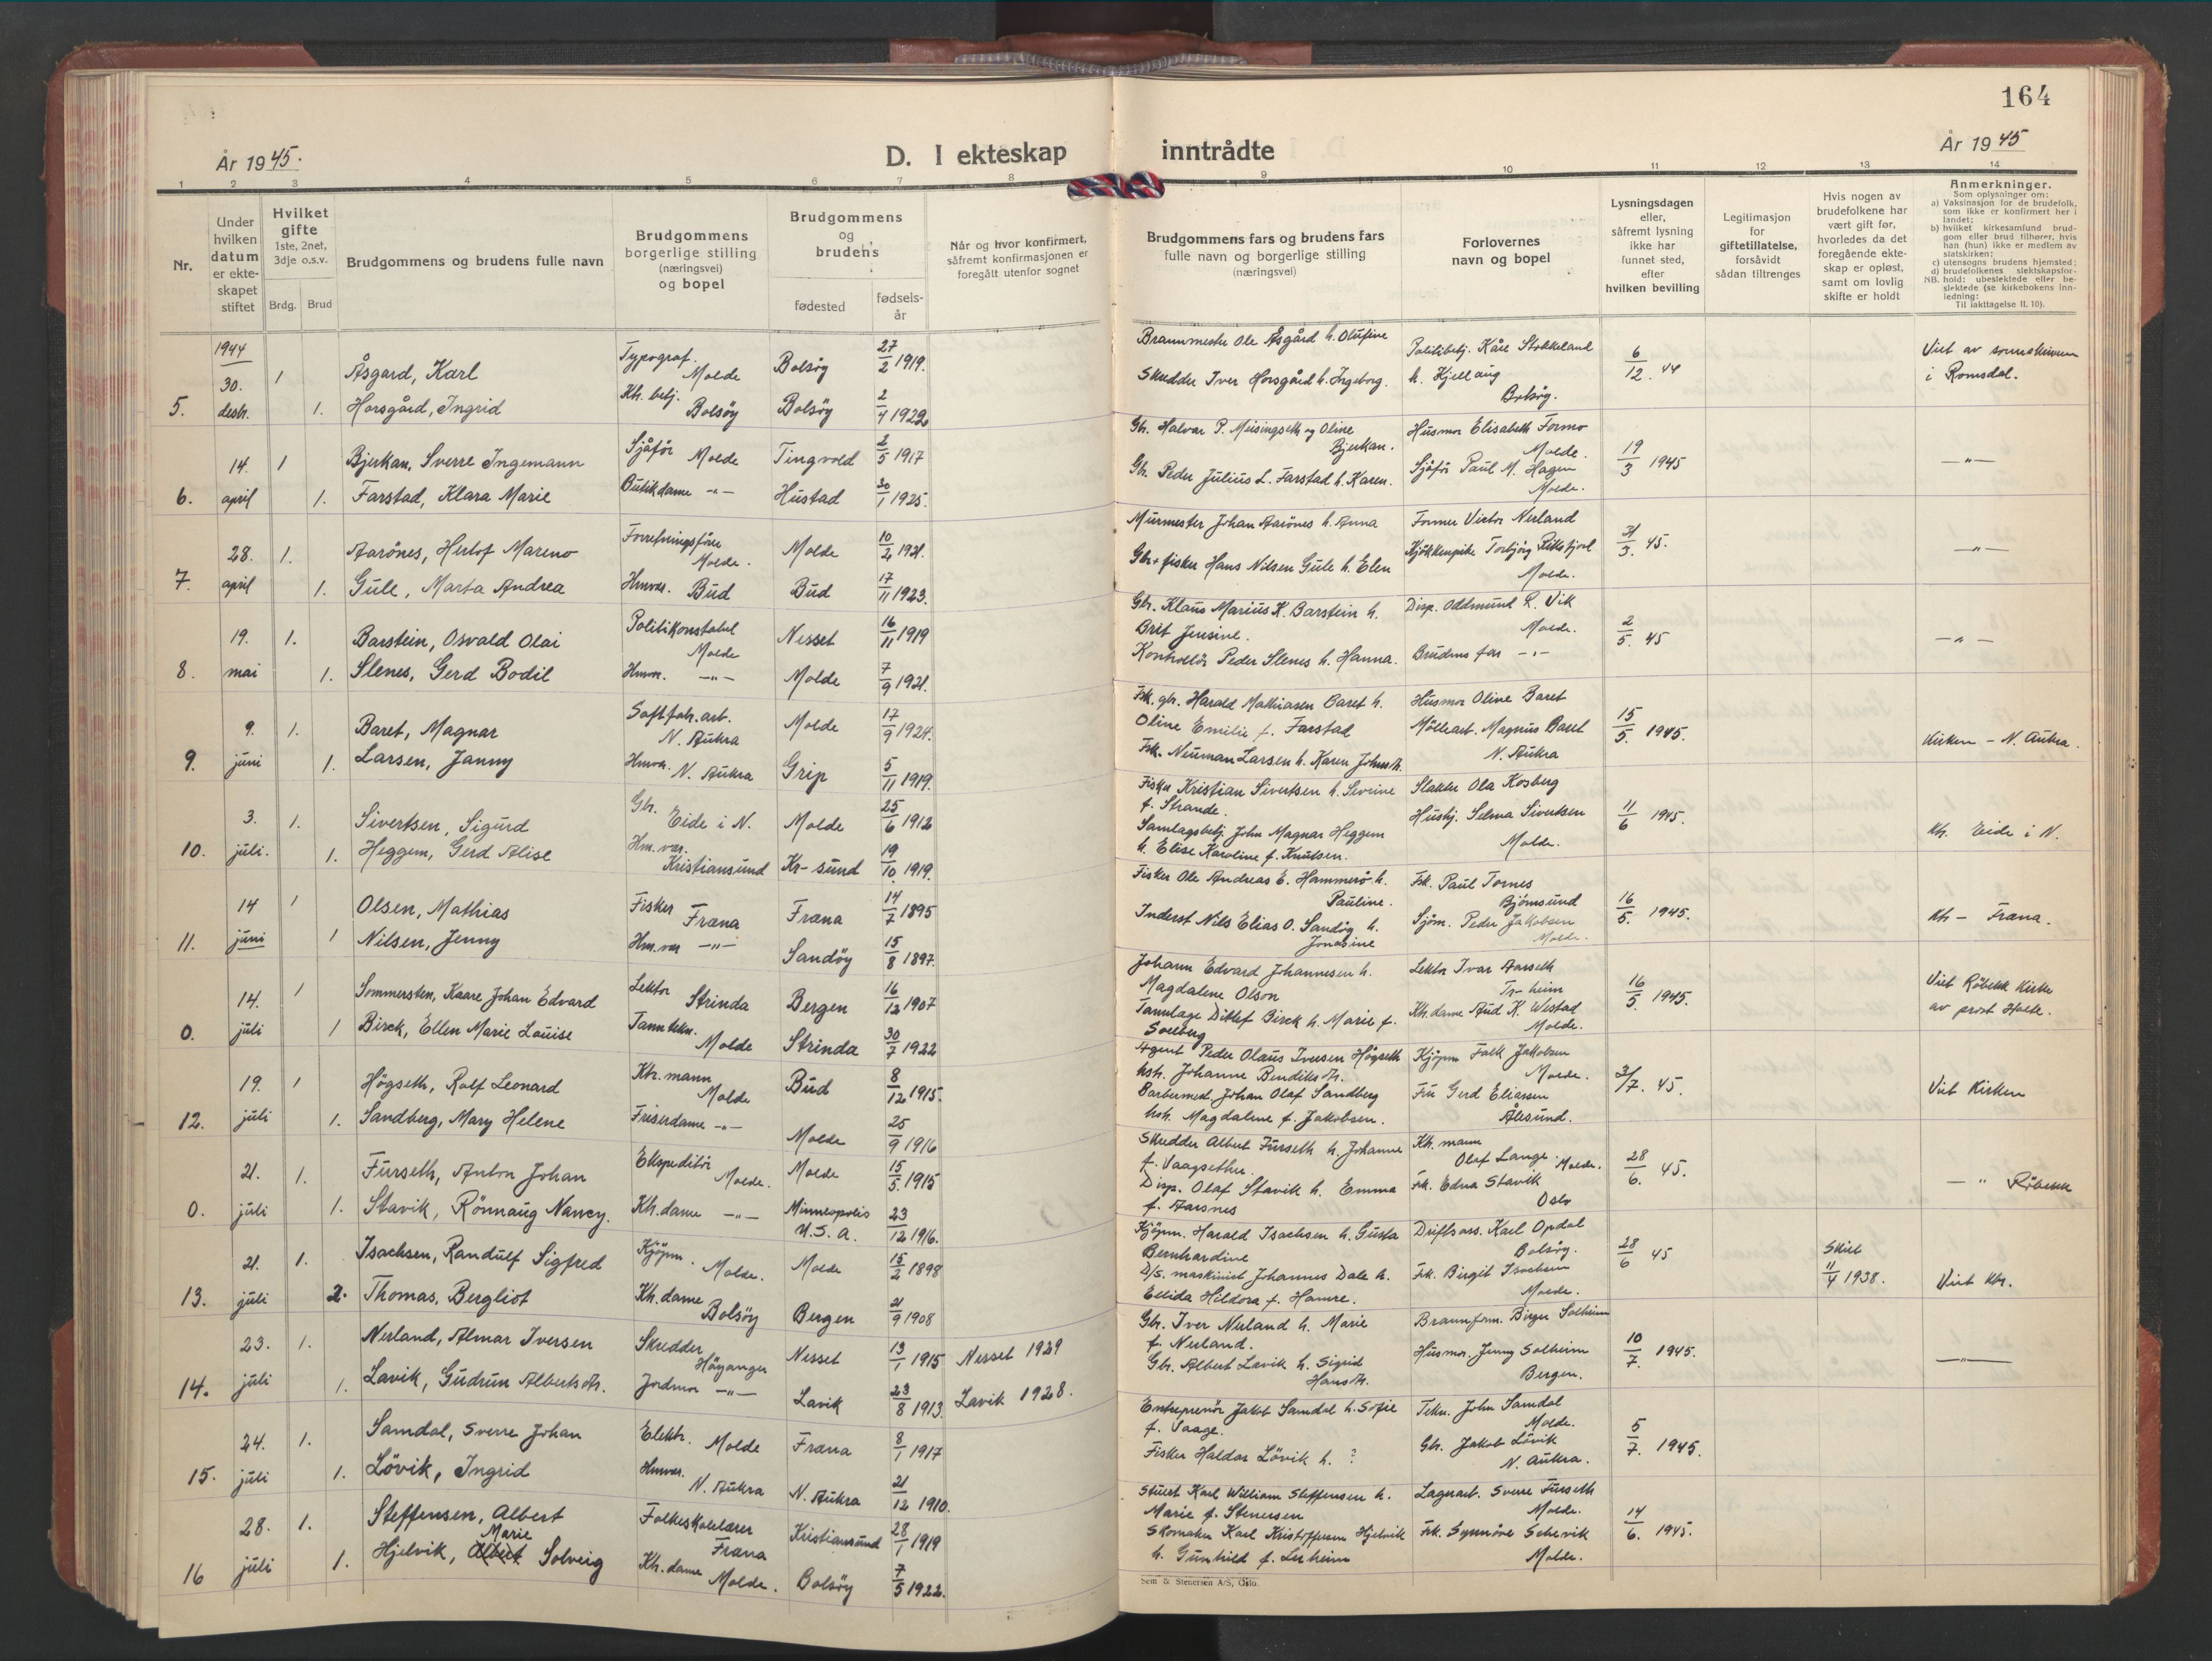 164
År 1945.
D. I ekteskap inntrådte
År 1945
1 2 3 4 5 6 7 8 9 10 11 12 13 14
Nr.
Under hvilken datum er ekteskapet stiftet
Hvilket gifte 1ste, 2net, 3dje o.s.v.
Brdg. Brud
Brudgommens og brudens fulle navn
Brudgommens borgerlige stilling (næringsvei) og bopel
Brudgommens og brudens
fødested
fødselsår
Når og hvor konfirmert, såfremt konfirmasjonen er foregått utenfor sognet
Brudgommens fars og brudens fars fulle navn og borgerlige stilling (næringsvei)
Forlovernes navn og bopel
Lysningsdagen eller, såfremt lysning ikke har funnet sted, efter hvilken bevilling
Legitimasjon for giftetillatelse, forsåvidt sådan tiltrenges
Hvis nogen av brudefolkene har vært gift før, hvorledes da det foregående ekteskap er opløst, samt om lovlig skifte er holdt
Anmerkninger.
Som oplysninger om:
a) Vaksinasjon for de brudefolk, som ikke er konfirmert her i landet;
b) hvilket kirkesamfund brudgom eller brud tilhører, hvis han (hun) ikke er medlem av statskirken;
c) utensogns brudens hjemsted;
d) brudefolkenes slektskapsforhold: ubeslektede eller beslektede (se kirkebokens innledning:
NB.
Til iakttagelse II. 10).
1944
30. 1 Åsgard, Karl Typograf. Molde Bolsøy 27/2 1919. Brannmester Ole Åsgård h. Olufine Politibetj. Kåre Stokkeland 6/12. 44 Viet av sorenskriveren
5. desbr. 1. Horsgård, Ingrid Kh. betj. Bolsöy Bolsöy 2/4 1922 Skredder Iver Horsgård h. Ingeborg. h. Kjellaug Bolsöy. i Romsdal.
14. 1 Bjerkan, Sverre Ingemann Sjåför Molde Tingvold 2/5 1917 Gbr. Halvar P. Meisingseth og Oline Bjerkan. Husmor Elisabeth Formo Molde. 19/3 1945 —"—
6. april 1. Farstad, Klara Marie Butikdame —"— Hustad 30/1 1925. Gbr. Peder Julius L. Farstad h. Karen. Sjåför Paul M. Hagen Molde.
28. 1. Aarönes, Herlof Mareno Forretningsförer Molde. Molde 10/2 1921. Murmester Johan Aarönes h. Anna Former Victor Nerland 21/3. 45. —"—
7. april 1. Gule, Marta Andrea Hmvær. Bud Bud 17/11 1923. Gbr + fisker Hans Nilsen Gule h. Elen Kjökkenpike Torbjörg Molde.
19. 1. Barstein, Osvald Olai Politikonstabel Molde Nesset 16/11 1919 Gbr. Klaus Marius K. Barstein h. Brit Jensine. Disp. Oddmund R. Vik Molde. 2/5. 45 —"—
8. mai 1. Slenes, Gerd Bodil Hmvær. —"— Molde 7/9 1921. Kontrollör Peder Slenes h. Hanna. Brudens far —"—
9. 1. Baret, Magnar Saftfabr. arb. N. Aukra Molde 17/9 1924. Fisk. gbr. Harald Mathiasen Baret h. Oline Emilie f. Farstad Husmor Oline Baret 15/5. 1945. Kirken – N. Aukra.
9. juni 1. Larsen, Janny Hmvær. N. Aukra Grip 5/11 1919. Fisk. Neuman Larsen h. Karen Johnsdtr. Möllearb. Magnus Baret N. Aukra
3. 1. Sivertsen, Sigurd Gbr. Eide i N. Molde 25/6 1912 Fisker Kristian Sivertsen h. Severine f. Strande. Slakter Ola Kosberg 11/6 1945. Kh. Eide i N.
10. juli. 1. Heggem, Gerd Alise Hm. vær. Kristiansund Kr-sund 19/10 1919. Samlagsbetj. John Magnar Heggem h. Elise Karoline f. Knutsen. Hushj. Selma Sivertsen Molde.
14 1 Olsen, Mathias Fisker Fræna Fræna 14/7 1895 Fisker Ole Andreas E. Hammerö h. Pauline. Fsk. Paul Tornes Bjömsund 16/5. 1945. Kh – Fræna.
11. juni 1 Nilsen, Jenny Hm. vær —"— Sandöy 15/8 1897. Inderst Nils Elias O. Sandöy h. Jonasine Sjöm. Peder Jakobsen Molde.
14. 1 Sommersten, Kaare Johan Edvard Lektor Strinda Bergen 16/12 1907 Johann Edvard Johannesen h. Magdalene Olson Lektor Ivar Aarseth Tr-heim 16/5 1945. Viet Röbekk Kirke
0. juli 1 Birck, Ellen Marie Louise Tanntekn. Molde Strinda 30/7 1922 Tannlæge Ditlef Birck h. Marie f. Solberg Kh. dame Aud K. Westad Molde. av prost Holte.
19. 1 Högseth, Rolf Leonard Kbr. mann Molde Bud 8/12 1915. Agent Peder Olaus Iversen Högseth hsh. Johanne Bendiksdtr. Kjöpm Falk Jakobsen Molde. 2/7. 45. Viet Kirken
12. juli 1. Sandberg, Mary Helene Friserdame —"— Molde 25/9 1916 Barbermest. Johan Olaf Sandberg hsh. Magdalene f. Jakobsen. Fru Gerd Eliassen Ålesund.
21. 1. Furseth, Anton Johan Ekspeditör Molde. Molde 15/5. 1915 Skredder Albert Furseth h. Johanne f. Vaagsether. Kh. mann Olaf Lange. Molde. 28/6. 45. —" Röbekk
0. juli 1. Stavik, Rönnaug Nancy. Kh. dame —"— Minneapolis U.S.A. 23/12 1916. Disp. Olaf Stavik h. Emma f. Aarsnes Frk. Edna Stavik Oslo
21. 1. Isachsen, Randulf Sigfred Kjöpm. Molde. Molde 15/2 1898 Kjöpm. Harald Isachsen h. Gusta Bernhardine Driftsass. Karl Opdal Bolsöy. 28/6 45 Skilt 11/4 1938. Viet Kh.
13. juli 2. Thomas, Bergliot Kh. dame Bolsöy Bergen 21/9 1908 D/S. maskinist Johannes Dale h. Ellida Hildora f. Hamre. Frk. Birgit Isachsen Molde.
23. 1. Nerland, Almar Iversen Skredder Höyanger Nesset 13/1 1915 Nesset 1929 Gbr. Iver Nerland h. Marie f. Nerland. Brannform. Birger Solheim 10/7. 1945. —"—
14. juli 1. Lavik, Gudrun Albertsdtr. Jordmor —"— Lavik 23/8 1913. Lavik 1928. Gbr. Albert Lavik h. Sigrid Hansdtr. Husmor. Jenny Solheim Bergen.
24. 1. Samdal, Sverre Johan Elektr. Molde Fræna 8/1 1917 Entreprenör Jakob Samdal h. Sofie f. Vaage. Tekn. John Samdal Molde. 5/7. 1945.
15. juli 1. Lövik, Ingrid Hmvær. N. Aukra N. Aukra 21/12 1910. Fisker Haldor Lövik h. ? Gbr. Jakob Lövik N. Aukra.
28. 1. Steffensen, Albert Folkeskolelærer Fræna Kristiansund 28/1 1919 Stuert Karl William Steffensen h. Marie f. Stenersen Lagerarb. Sverre Furseth Molde. 14/6. 1945.
16 juli 1. Hjelvik, Marie Solveig Kh. dame Molde. Bolsöy 7/5 1922. Skomaker Karl Kristoffersen Hjelvik h. Gunhild f. Lerheim Frk. Synnöve Schevik Molde.
Sem & Stenersen A/S, Oslo.